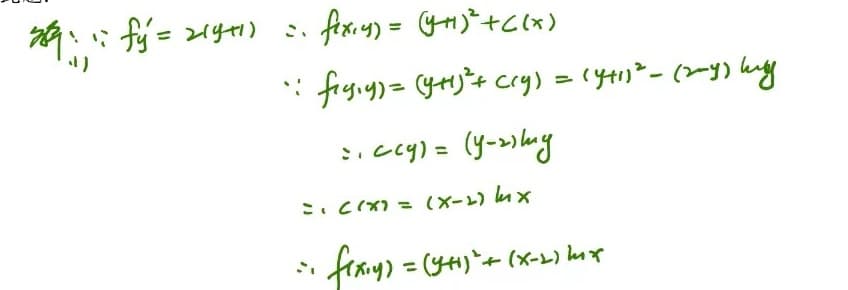 解：(1) ∵ fy′ = 2(y+1) ∴ f(x,y) = (y+1)² + C(x)
∵ f(y,y) = (y+1)² + C(y) = (y+1)² - (2-y) ln y
∴ C(y) = (y-2) ln y
∴ C(x) = (x-2) ln x
∴ f(x,y) = (y+1)² + (x-2) ln x